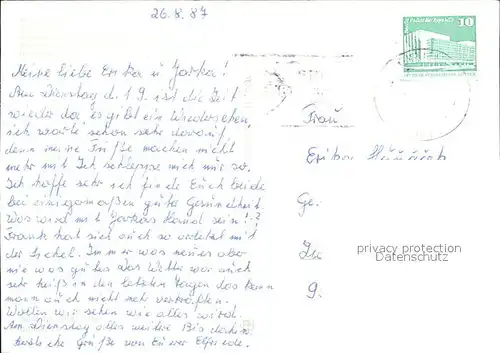 26.8.87
10
Meine Liebe Erika u. Jarka!
Am Dienstag d. 1 9. ist die Zeit
wieder da, es gibt ein Wiedersehen,
ich warte schon sehr darauf,
denn meine Füße machen nicht
mehr mit Ich schleppe mich nur so.
Ich hoffe sehr ich finde Euch beide
bei einigermaßen guter Gesundheit.
Was wird mit Jarkas Hand sein!?
Frank hat sich auch so verletzt mit
der Sichel. Immer was neues aber
nie was gutes Das Wetter war auch
sehr heiß in den letzten Tagen das kann
man auch nicht mehr verkraften.
Wollen wir sehen wie alles wird.
Am Dienstag alles weitere Bis dahin
herzliche Grüße von Eurer Elfriede.
Frau
Erika
Ge.
9.
privacy protection
Datenschutz